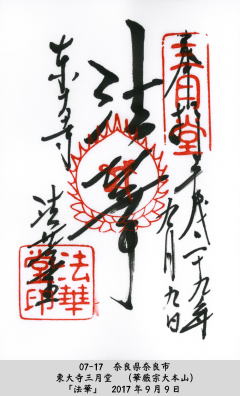 奉拝
平成二十九年
九月九日
三月堂
法華
東大寺
法華堂
法華堂印
07-17 奈良県奈良市
東大寺三月堂 (華厳宗大本山)
「法華」 2017年9月9日